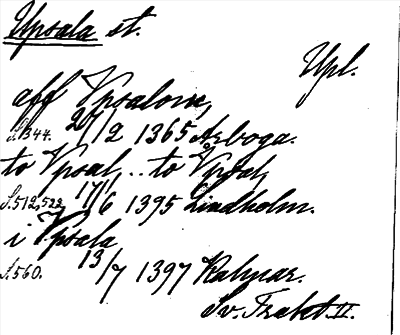 Upsala st.
Upl.
aff Vpsalom,
S. 344. 24/2 1365 Arboga.
to Vpsal, .. to Vpsal,
S. 512, 522 17/6 1395 Lindholm.
i Vpsala
S. 560. 13/7 1397 Kalmar.
Sv. Trakt. II.